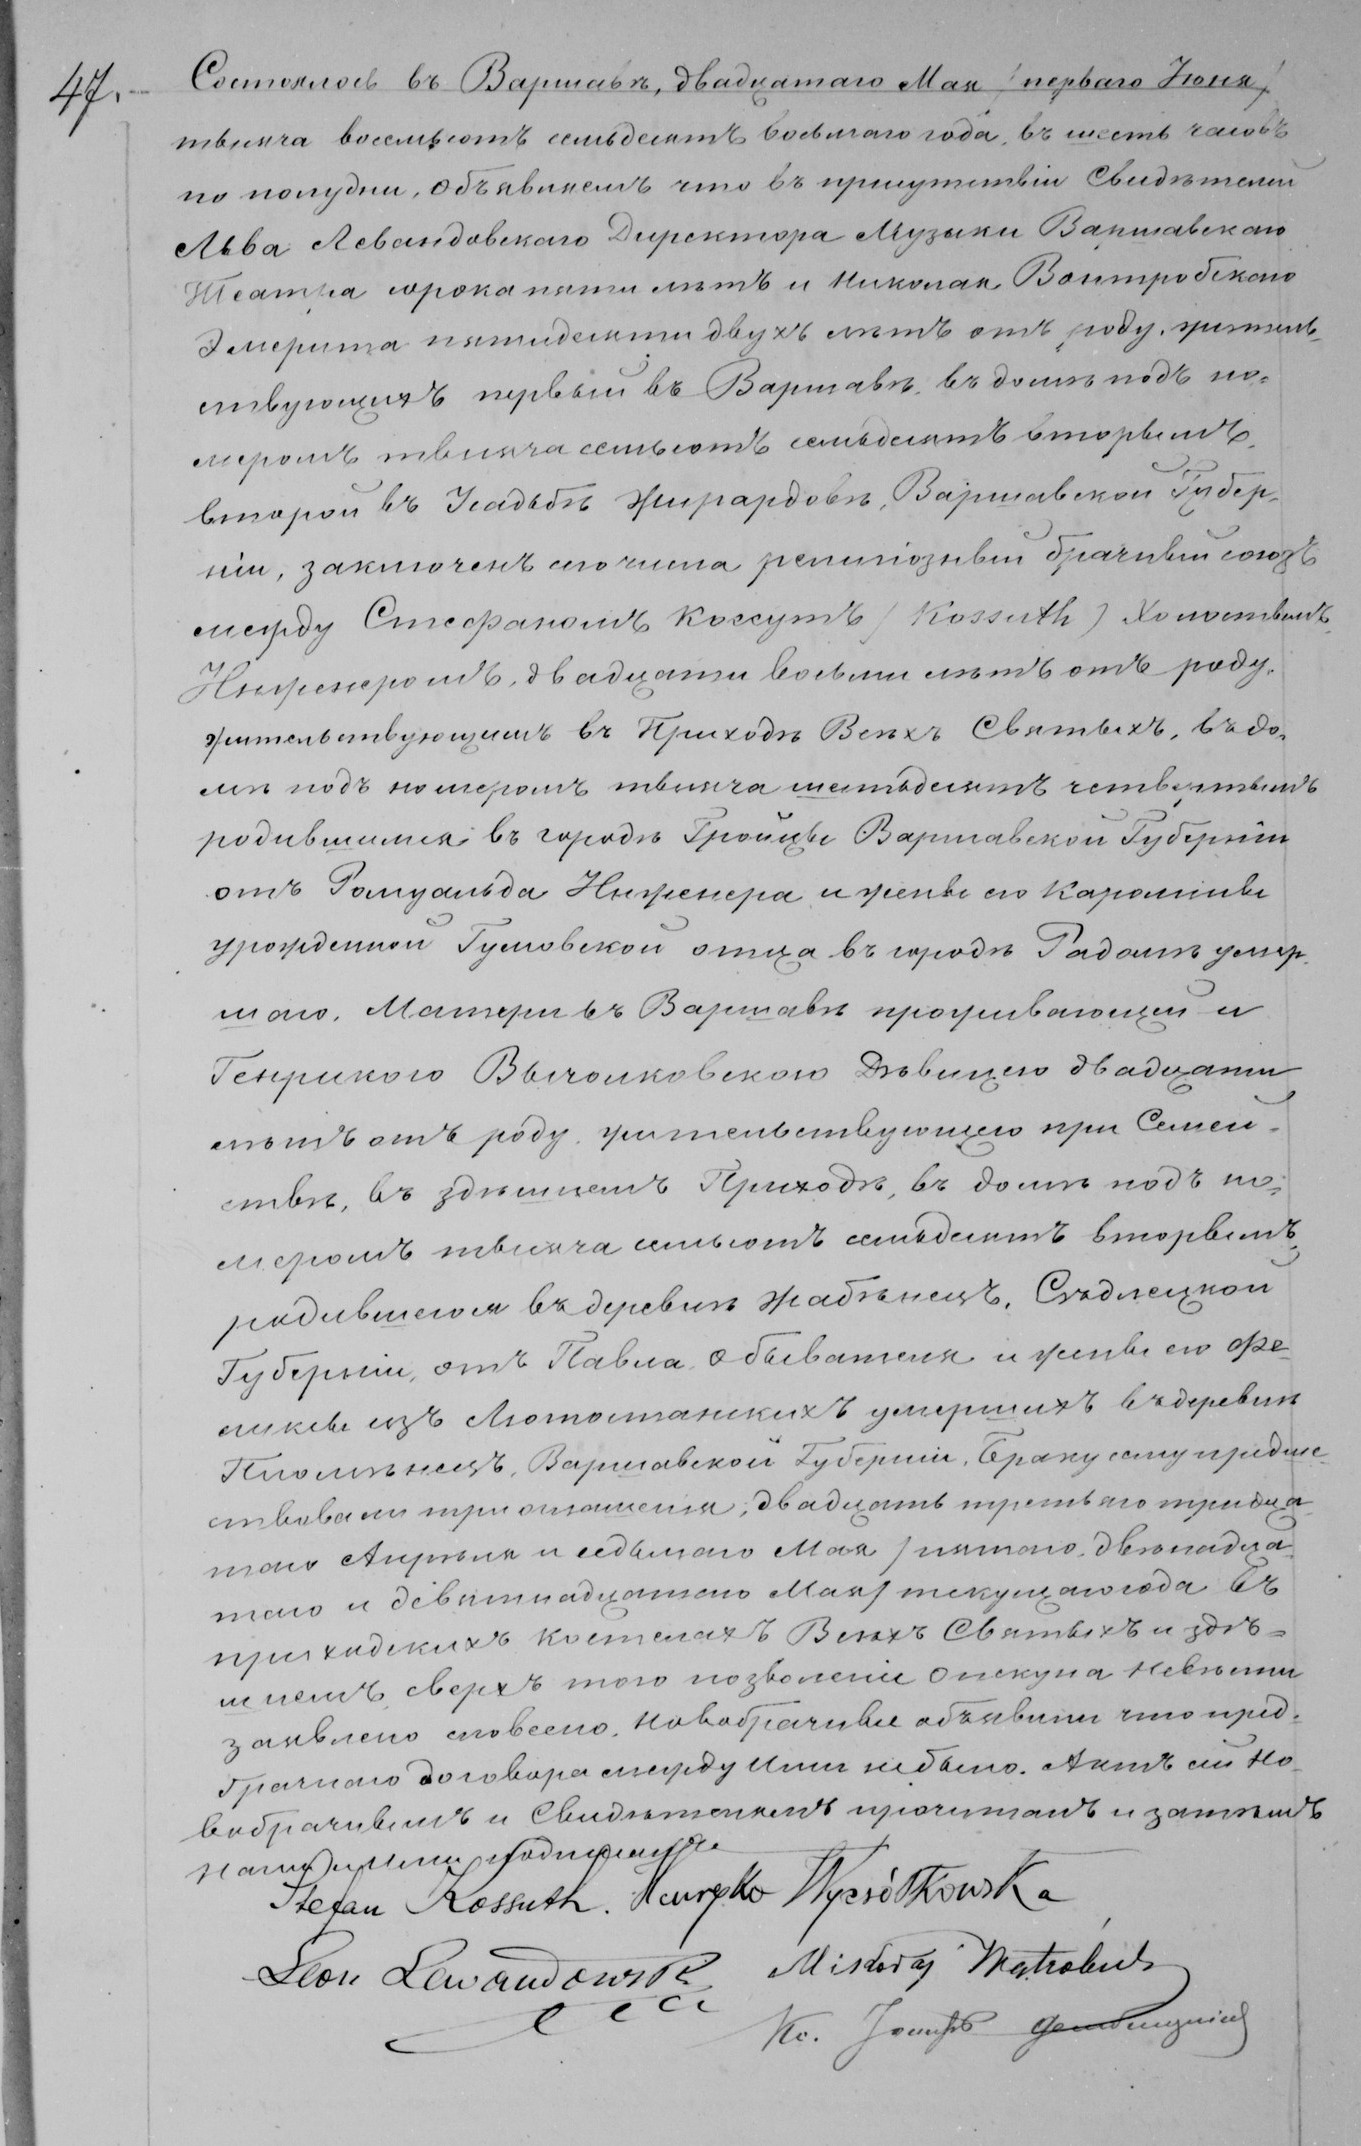 47. Состоялось въ Варшавѣ, двадцатаго Мая / перваго Іюня /
тысяча восемьсотъ семьдесятъ восьмаго года, въ шесть часовъ
по полудни. Объявляемъ что въ присутствіи Свидѣтелей
Льва Левандовскаго Директора Музыки Варшавскаго
Театра сорока пяти лѣтъ и Николая Вонтробскаго
Эмерита пятидесяти двухъ лѣтъ отъ роду, житель-
ствующихъ первый въ Варшавѣ, въ домѣ подъ но-
меромъ тысяча семьсотъ семьдесятъ вторымъ,
второй въ Усадьбѣ Жирардовѣ, Варшавской Губер-
ніи, заключенъ сего числа религіозный брачный союзъ
между Стефаномъ Коссутъ / Kossuth ) Холостымъ,
Инженеромъ, двадцати восьми лѣтъ отъ роду,
жительствующимъ въ Приходѣ Всѣхъ Святыхъ, въ до-
мѣ подъ номеромъ тысяча шестьдесятъ четвертымъ
родившимся въ городѣ Гройцы Варшавской Губерніи
отъ Ромуальда Инженера и жены его Каролины
урожденной Гумовской отца въ городѣ Радомѣ умер-
шаго, Матери въ Варшавѣ проживающей и
Генрикою Вычолковскою Дѣвицею двадцати
лѣтъ отъ роду, жительствующею при Семей-
ствѣ, въ здѣшнемъ Приходѣ, въ домѣ подъ но-
меромъ тысяча семьсотъ семьдесятъ вторымъ,
родившеюся въ деревнѣ Жабѣнецъ, Сѣдлецкой
Губерніи, отъ Павла Обывателя и жены его Фе-
ликсы изъ Лютостанскихъ умершихъ въ деревнѣ
Варшавской Губерніи. Браку сему предше-
ствовали три оглашенія, двадцать третьяго тридца-
таго Апрѣля и седьмаго Мая / пятаго, двѣнадца-
таго и девятнадцатаго Мая / текущаго года въ
приходскихъ костелахъ Всѣхъ Святыхъ и здѣ-
шнемъ, сверхъ того позволеніе опекуна Невѣсты
заявлено словесно. Новобрачные объявили что пред-
брачнаго договора между ними не было. Актъ сей Но-
вобрачнымъ и Свидѣтелямъ прочитанъ и затѣмъ
нами и ими подписанъ
Stefan Kossuth. Henryka Wyczółkowska
Leon Lewandowski Mikołaj Wątrobski
Кс. Іосифъ